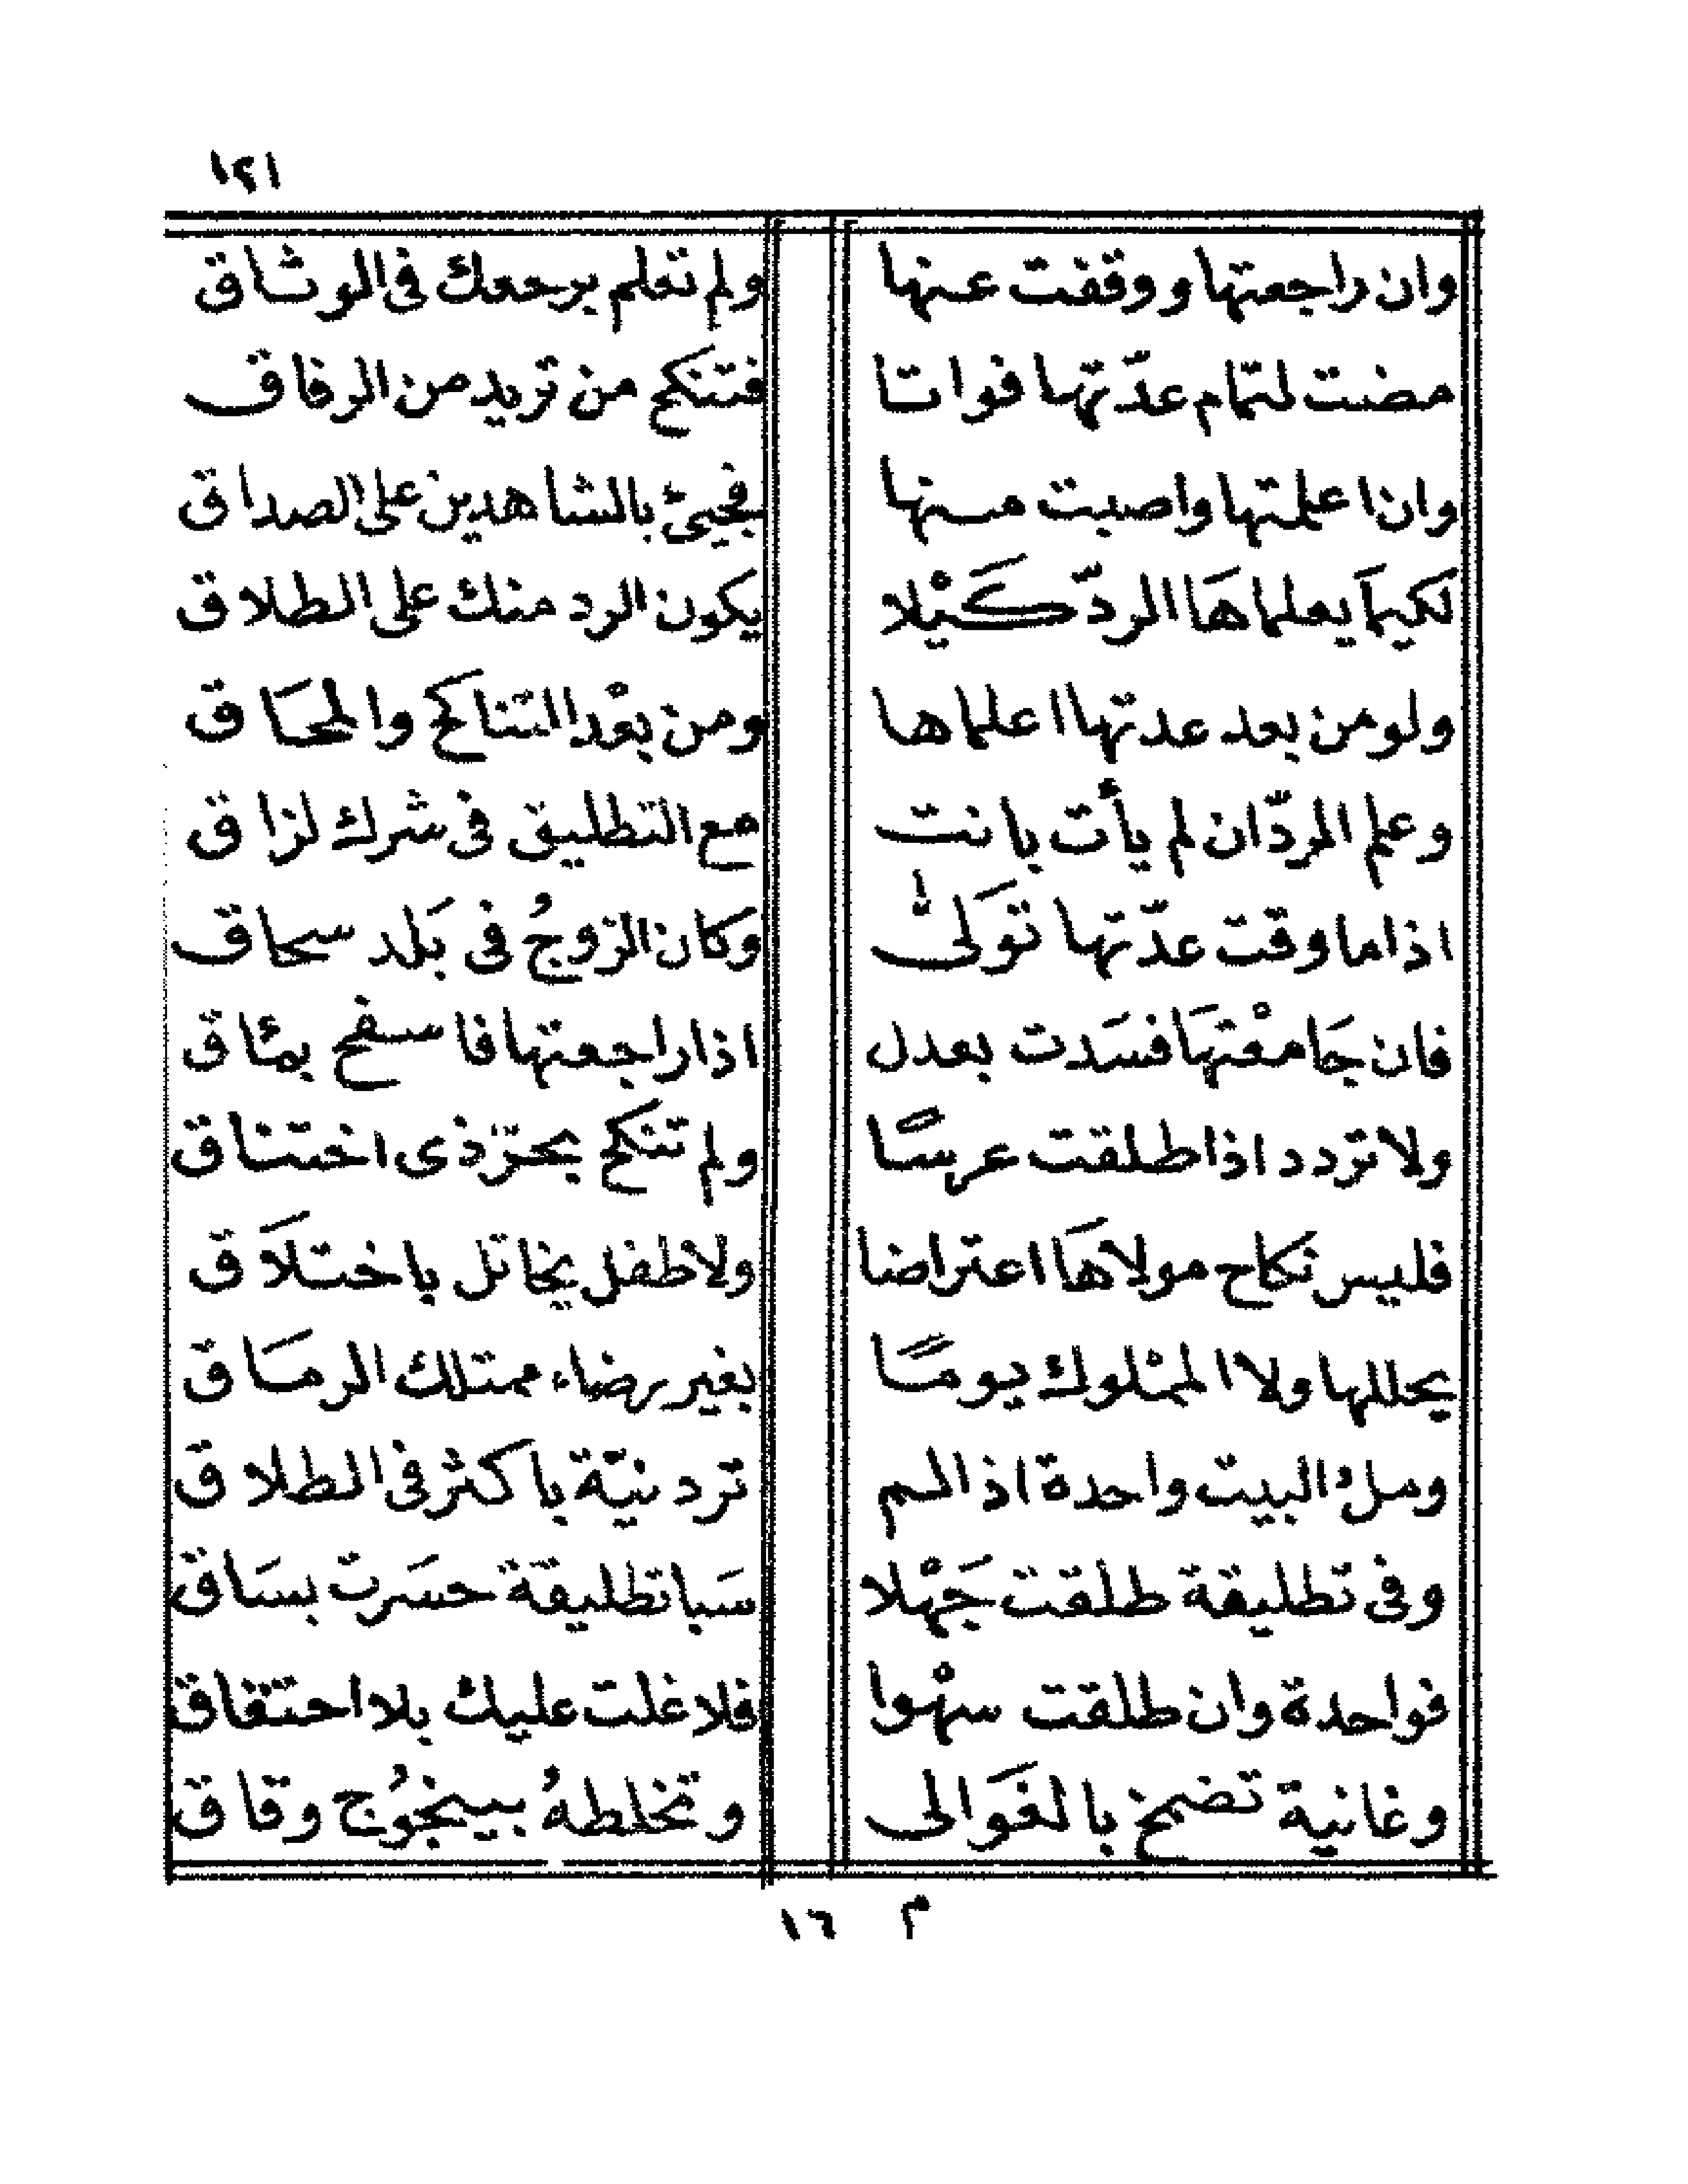 ١٢١
وان راجعتها ووقفت عنها ولم تعلم برجعك فى الوثاق
مضت لتمام عدّتها فواتا فتنكح من تريد من الرفاق
وان اعلمتها واصبت منها فجىئ بالشاهدين على الصداق
لكيمَا يعلماهَا الردّ كَيْلا يكون الرد منك على الطلاق
ولو من بعد عدتها اعلماها ومن بعْد التناكح والمحَاق
وعلم الردّ ان لم يأت بانت مع التطليق فى شرك لزاق
اذا ما وقت عدّتها تَولىّ وكان الزوجُ فى بَلد سحاق
فان جَامعْتهَا فسَدت بعدل اذا راجعتها فاسفح بمئاق
ولا تردد اذا طلقت عرسًا ولم تنكح بحرّ ذى اختناق
فليس نكاح مولاهَا اعتراضا ولا طفل يخاتل باختلَاق
يحللها ولا المْملوك يومًا بغير رضاء ممتلك الرمَاق
وملء البيت واحدة اذا لم ترد نيّة باكثر فى الطلاق
وفى تطليقة طلقت جَهْلا سَبا تطليقة حسَرت بسَاق
فواحدة وان طلقت سهْوا فلا غلت عليك بلا احتقاق
وغانية تضمخ بالغَوالى وتخلطهُ بينجُوج وقاق
م ١٦